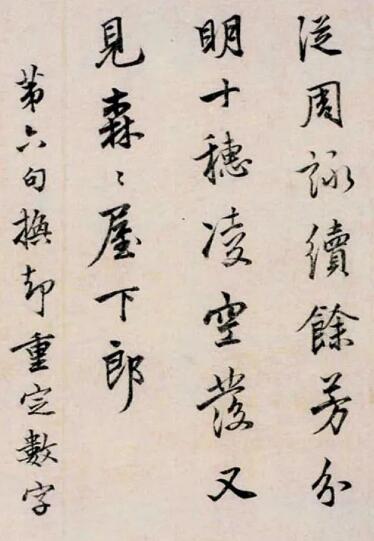 従周詠續餘芳分
明十穗凌空發又
見森〻屋下郎
第六句撫却重定數字